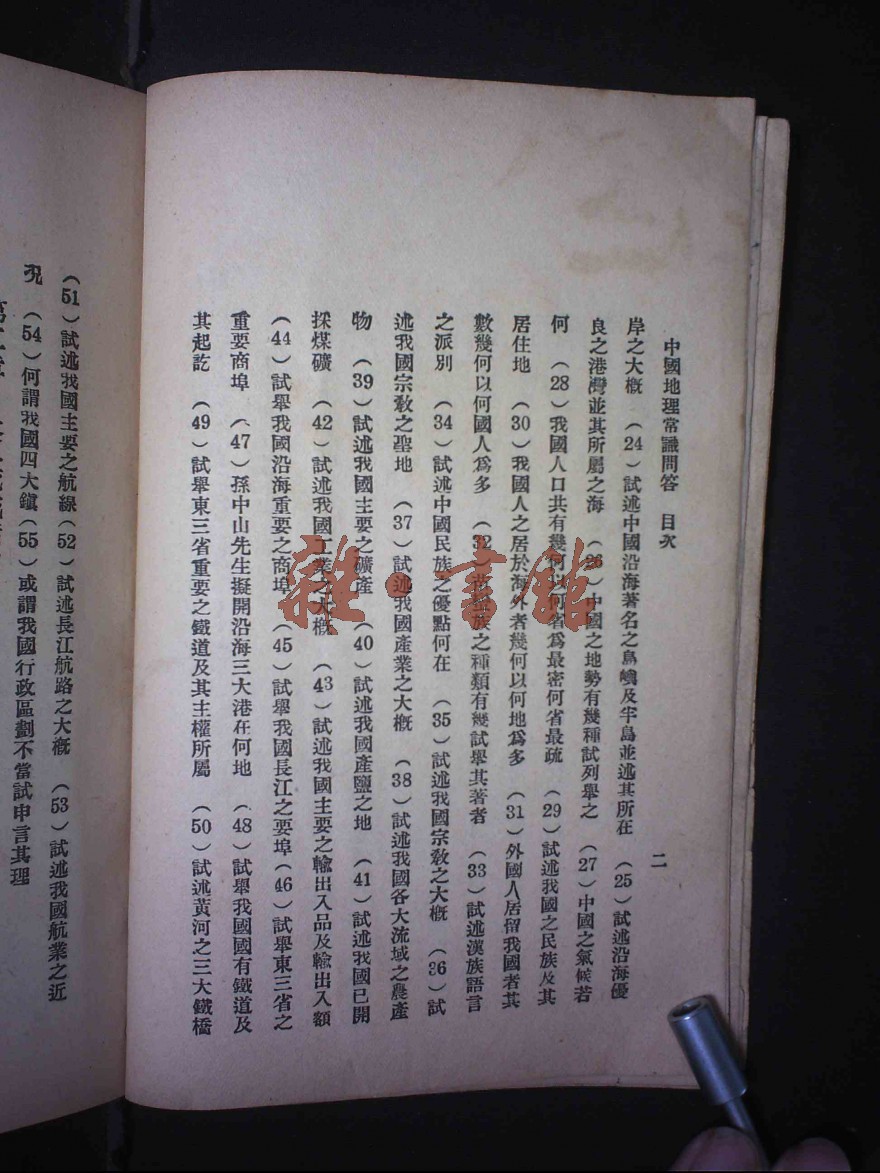 中國地理常識問答　目次
二
岸之大概　(24)試述中國沿海著名之島嶼及半島並述其所在　(25)試述沿海優
良之港灣並其所屬之海　(26)中國之地勢有幾種試列舉之　(27)中國之氣候若
何　(28)我國人口共有幾何以何省爲最密何省最疏　(29)試述我國之民族及其
居住地　(30)我國人之居於海外者幾何以何地爲多　(31)外國人居留我國者其
數幾何以何國人爲多　(32)族之種類有幾試舉其著者　(33)試述漢族語言
之派別　(34)試述中國民族之優點何在　(35)試述我國宗敎之大概　(36)試
述我國宗敎之聖地　(37)試述我國產業之大概　(38)試述我國各大流域之農產
物　(39)試述我國主要之礦產　(40)試述我國產鹽之地　(41)試述我國已開
採煤礦　(42)試述我國工業之大概　(43)試述我國主要之輸出入品及輸出入額
(44)試舉我國沿海重要之商埠　(45)試舉我國長江之要埠(46)試舉東三省之
重要商埠　(47)孫中山先生擬開沿海三大港在何地　(48)試舉我國國有鐵道及
其起訖　(49)試舉東三省重要之鐵道及其主權所屬　(50)試述黃河之三大鐵橋
(51)試述我國主要之航線(52)試述長江航路之大概　(53)試述我國航業之近
況　(54)何謂我國四大鎭(55)或謂我國行政區劃不當試申言其理
雜·書館